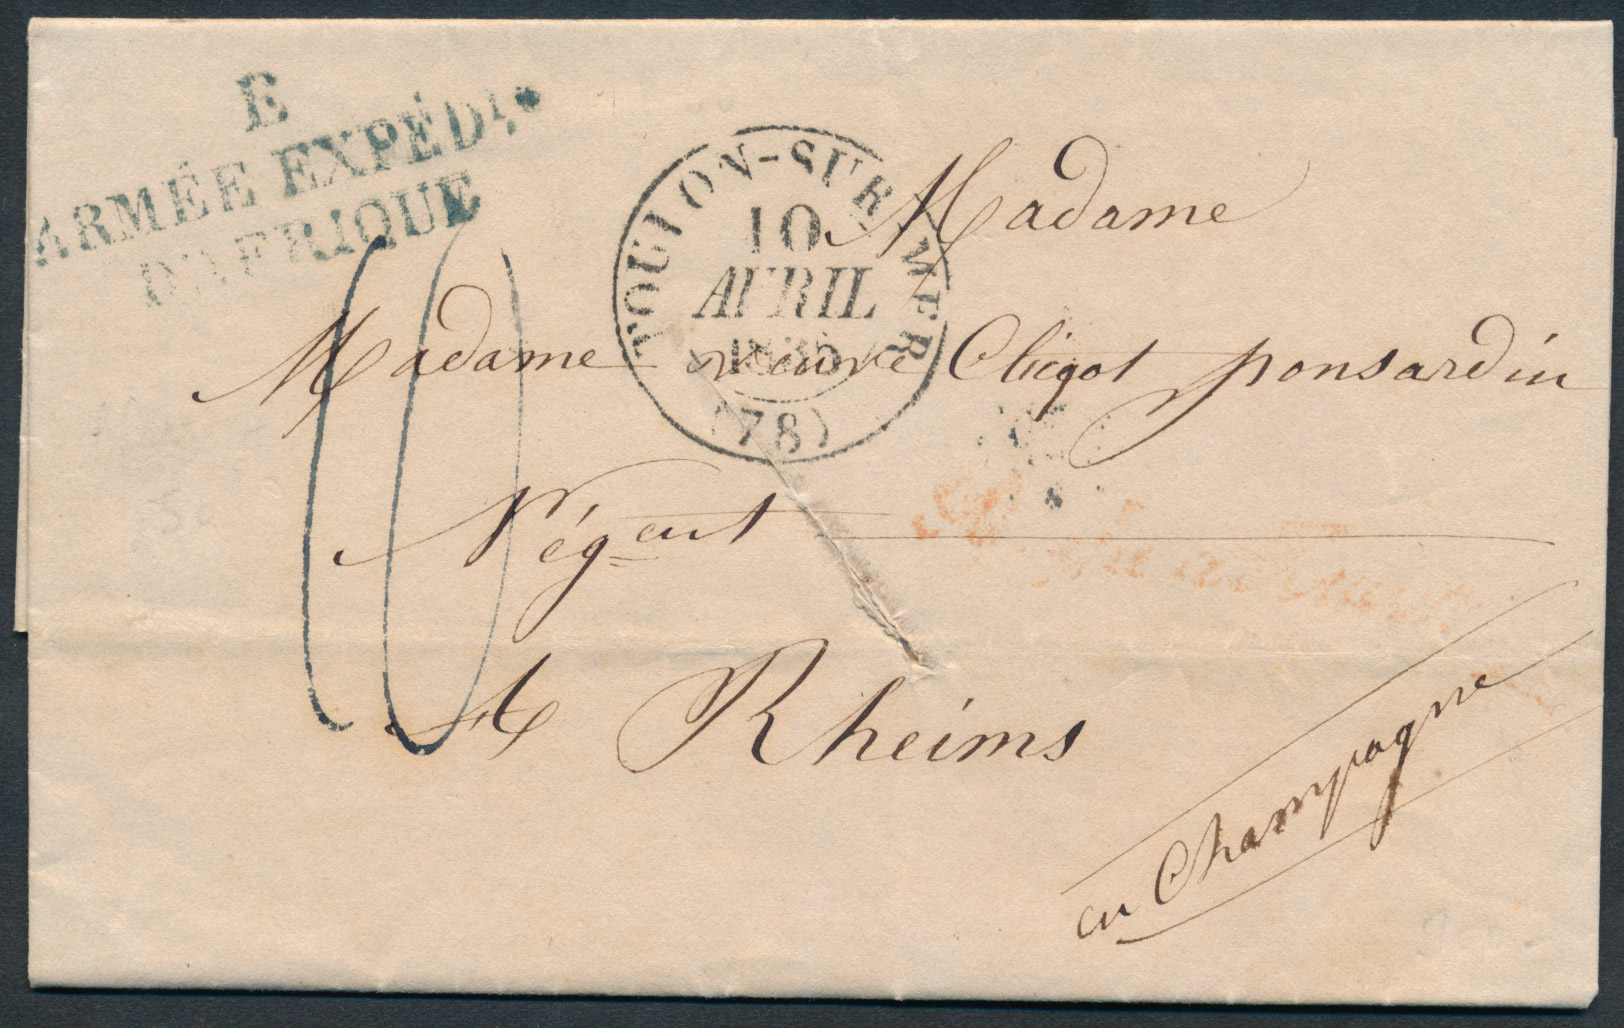 E
ARMÉE EXPÉD.
D'AFRIQUE
TOULON-SUR-MER
10
AVRIL
(78)
Madame
Madame veuve Clicqot ponsardin
Négent
A Rheims
en Champagne